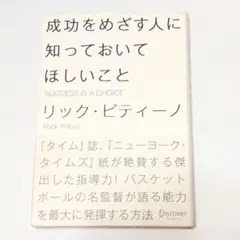 成功をめざす人に
知っておいて
ほしいこと
SUCCESS IS A CHOICE
リック・ピティーノ
Rick Pitino
「タイム」誌、「ニューヨーク・
タイムズ」紙が絶賛する傑
出した指導力！バスケット
ボールの名監督が語る能力
を最大に発揮する方法
Discover